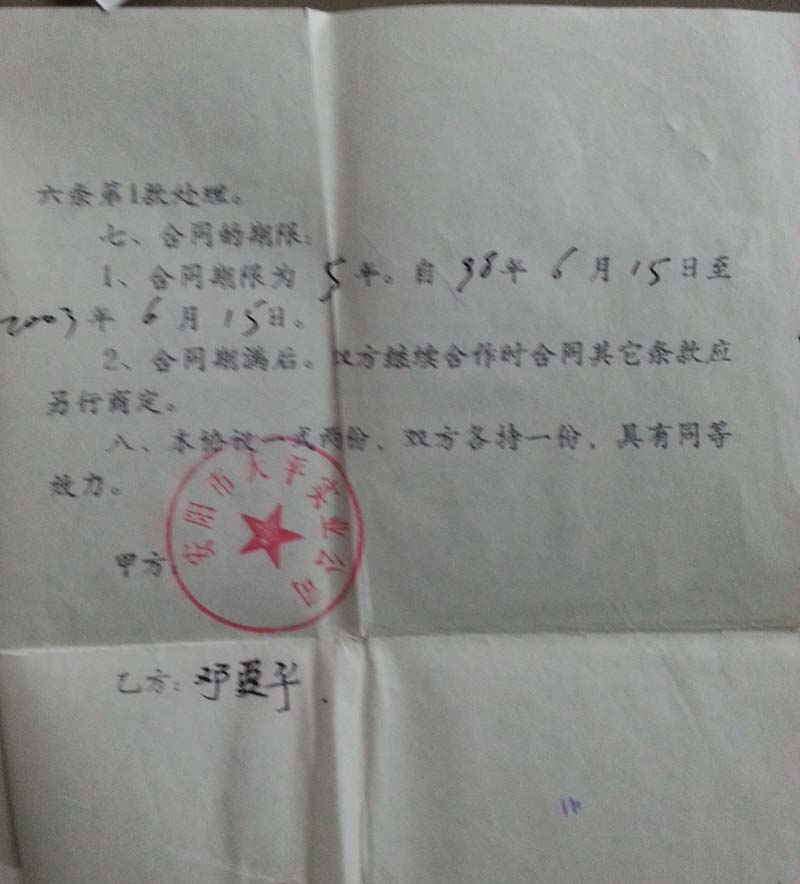 六条第1款处理。
七、合同的期限:
1、合同期限为 5年。自98年 6月15日至
2003年 6月15日。
2、合同期满后。双方继续合作时合同其它条款应
另行商定。
八、本协议一式两份、双方各持一份、具有同等
效力。
安阳市太平实业公司
甲方:
乙方:邓亚平